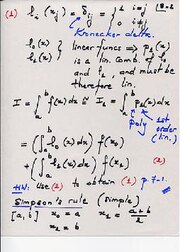 (1) lᵢ(xⱼ) = δᵢⱼ = { 1 i=j
0 i≠j
Kronecker delta.
l₀(x)
l₁(x) } linear funcs ⇒ p₁(x)
is a lin. comb. of l₀
and l₁, and must be
therefore lin.
I = ∫ₐᵇ f(x)dx ≅ I₁ = ∫ₐᵇ p₁(x)dx
poly 1st order (lin.)
= (∫ₐᵇ l₀(x)dx) f(x₀)
+ (∫ₐᵇ l₁(x)dx) f(x₁) (2)
HW: Use (2) to obtain (1) p.7-1.
Simpson's rule (simple)
[a, b] x₀ = a x₁ = a+b/2
x₂ = b